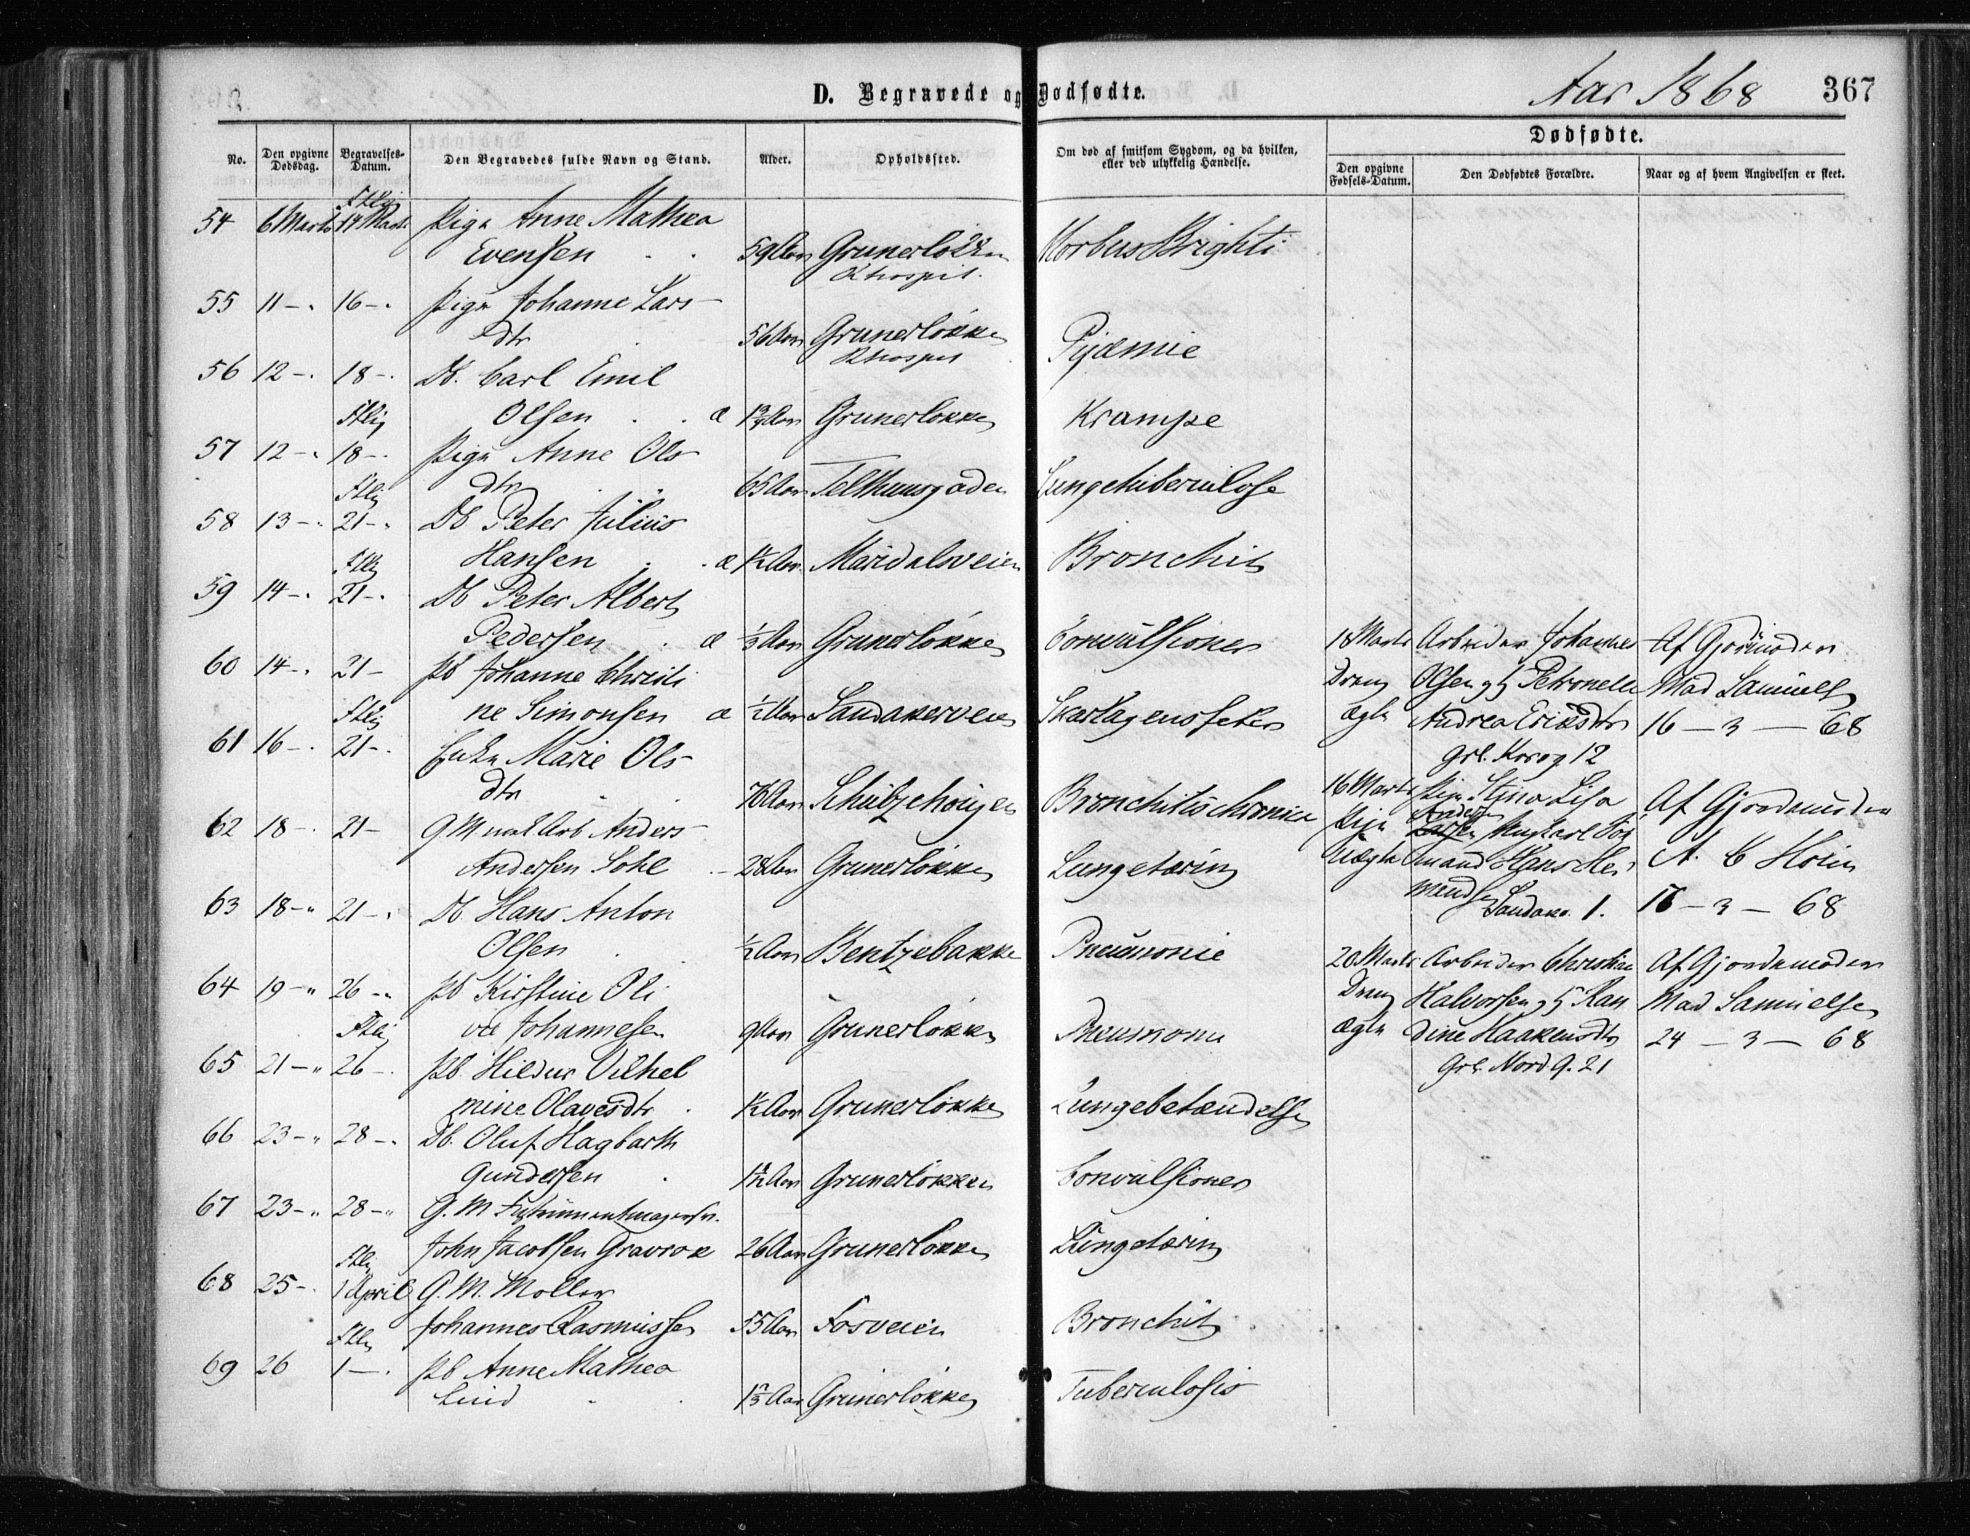 D. Begravede og Dødfødte.
Aar 1868 367
No.
Den opgivne Dødsdag.
Begravelses-Datum.
Den Begravedes fulde Navn og Stand.
Alder.
Opholdssted.
Om død af smitsom Sygdom, og da hvilken, eller ved ulykkelig Hændelse.
Dødfødte.
Den opgivne Fødsels-Datum.
Den Dødfødtes Forældre.
Naar og af hvem Angivelsen er skeet.
54 6 Marts 14 Marts Pige Anne Mathea
Evensen 59 Aar Grunerløkken Morbus Brighti
Khospit.
55 11 - 16 - Pige Johanne Lars-
dtr 56 Aar Grunerløkken Pyæmie
Khospit
56 12 - 18 - Db. Carl Emil
Olsen æ Aar Grunerløkken Krampe
57 12 - 18 - Pige Anne Ols
dtr 65 Aar Telthusgaden Lungetuberculose
58 13 - 21 - Db Peter Julius
Hansen æ Aar Maridalsveien Bronchit
59 14 - 21 - Db Peter Albert
Pedersen æ Aar Grunerløkken Convulsioner
60 14 - 21 - Pb Johanne Christi
ne Simonsen æ 1/2 Aar Sandakerveien Skarlagensfeber
61 16 - 21 - Enke Marie Ols
dtr 76 Aar Schultzehougen Bronchitis chronica
62 18 - 21 - G. M Arb Anders
Andersen 28 Aar Grunerløkken Lungetæring
63 18 - 21 - Db Hans Anton
Olsen 1/2 Aar Bentzebakken Pneumonie
64 19 - 26 - Pb Kirstine Oli
ve Johannesen 9 Aar Grunerløkken Pneumoni
65 21 - 26 - Pb. Hildur Vilhel
mine Olavesdtr Aar Grunerløkken Lungebetændelse
66 23 - 28 - Db. Oluf Hagbarth
Gundersen Aar Grunerløkken Convulsioner
67 23 - 28 - G. M Instrumentmagersv.
John Jacobsen Gravrok 26 Aar Grunerløkken Lungetæring
68 25 - 1 April G. M. Møller
Johannes Rasmussen 55 Aar Fosveien Bronchit
69 26 1 - Pb Anne Mathea
Lind Aar Grunerløkken Tuberculosis
18 Marts Arbeider Johannes Af Gjordmoder
Dreng Olsen og Petronelle Mad Samuelsen
ægte Andrea Eriksdtr 16 - 3 - 68
Grl. Korsg 12
16 Marts Pige Stina Lisa Af Gjordemoder
Pige
Uægte mand Hans A. C Holm
Sandak. 1. 17 - 3 - 68
20 Marts Arbeider Christian Af Gjordemoder
Dreng Halvorsen og Ran Mad Samuelsen
ægte dine Haakensdtr 24 - 3 - 68
Grl. Nord G. 21